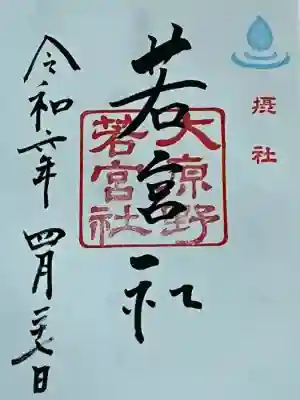 摂社
若宮社
大原野
若宮社
令和六年 四月二十七日